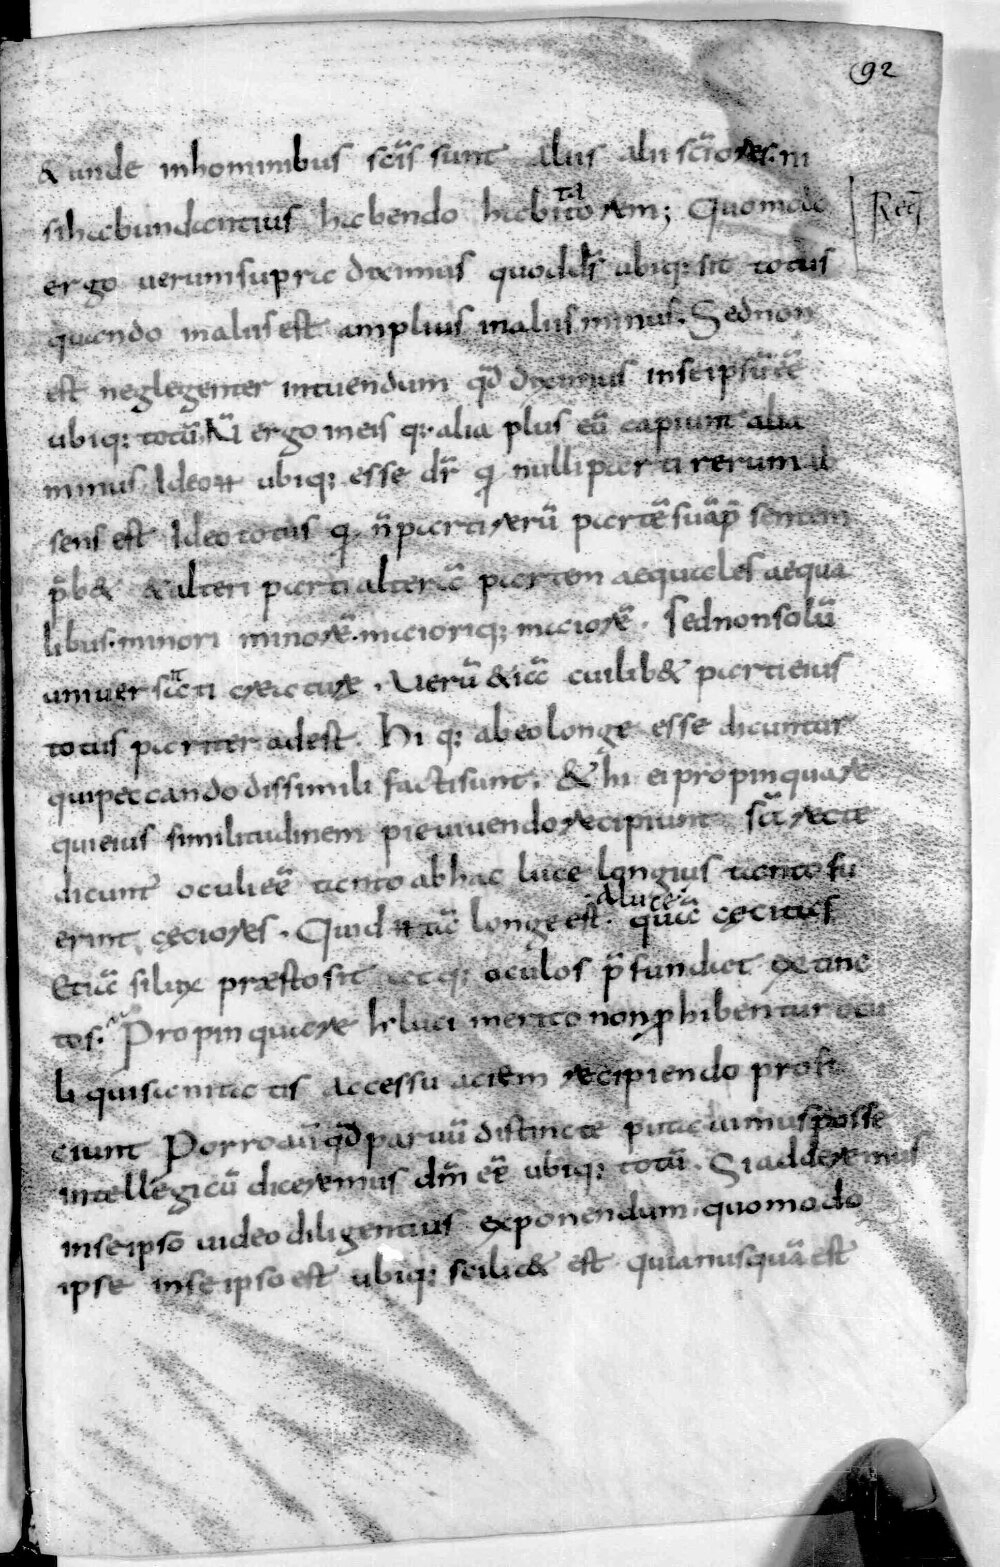 92
& unde inhominibus scīs sunt alus alii scīores. ni
sihabundantius habendo habitatorem; Quomodo
Req̄
ergo verumsupra diximus quodds̄ ubiq; sit totus
quando inaliis est amplius inaliis minus. Sednon
est neglegenter intuendum qd̄ diximus inseipsū eē
ubiq; totū. Nī ergo ineis q. alia plus eū capiunt alia
minus Ideo ubiq; esse dr̄ q nulli parti rerum ab
sens est Ideo totus q n̄ parti rerū partē suā p̄sentem
p̄b& & alteri parti alterā partem aequales aequa
libus. minori minorē. maioriq; maiorē. sednonsolū
universitati creaturæ. Verū &iā cuilib& partieius
totus pariter adest. Hi q; abeolonge esse dicuntur
quipeccando dissimili factisunt. & hi ei propinquare
quieius similitudinem pievivendo recipiunt sic̄ recte
dicunt oculi eē tanto abhac luce longius tanto fu
erint cęciores. Quid tā longe est aluce quā cęcitas
Etiā silux præstosit atq; oculos p̄fundat extinc
tos. Propinquare luci merito nonphibentur ocu
li quisanitatis accessu aciem recipiendo profi
ciunt Porro aū qd̄ parvū distincte putavimus posse
intellegi cū diceremus dm̄ eē ubiq; totū. Siadderemus
inseipso video diligentius exponendum. quomodo
ipse inseipso est ubiq; scilic& est quianusquā est